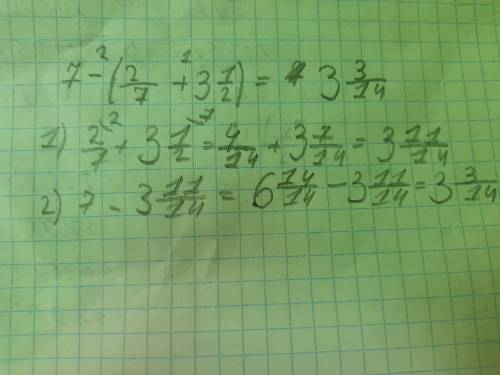 7 -² (2/7 +¹ 3 1/2) = 3 3/14
1) 2/7⁽² + 3 1/2⁽⁷ = 4/14 + 3 7/14 = 3 11/14
2) 7 - 3 11/14 = 6 14/14 - 3 11/14 = 3 3/14